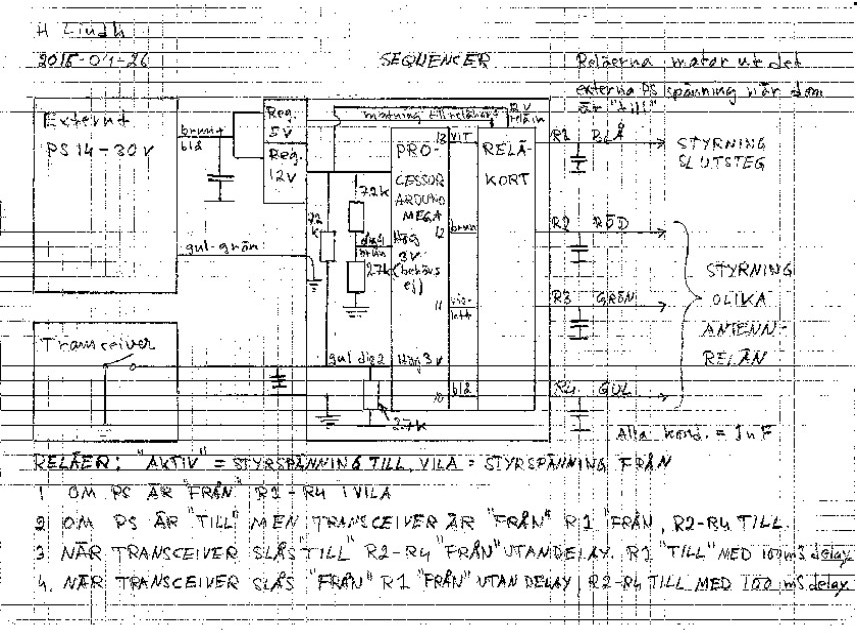 H Lindh
2015-01-26
SEQUENCER
Reläerna matar ut det
externa PS spänning när dom
är "till"
Externt
PS 14-30V
brunt
blå
gul-grön
Reg.
5V
Reg.
12V
matning till reläkort
12V
relä in
PRO-
CESSOR
ARDUINO
MEGA
RELÄ-
KORT
13 VIT
12 brun
11 vio-
lett
10 blå
72k
72
k
dig4
brun
Hög
3V
(behövs
ej)
27k
gul dig2 Hög 3V
27k
R1 BLÅ
STYRNING
SLUTSTEG
R2 RÖD
R3 GRÖN
R4 GUL
STYRNING
OLIKA
ANTENN-
RELÄN
Transceiver
Alla kond. = 1nF
RELÄER: "AKTIV" = STYRSPÄNNING TILL, VILA = STYRSPÄNNING FRÅN
1 OM PS ÄR "FRÅN" R1-R4 I VILA
2 OM PS ÄR "TILL" MEN TRANSCEIVER ÄR "FRÅN" R1 "FRÅN, R2-R4 TILL.
3 NÄR TRANSCEIVER SLÅS "TILL" R2-R4 "FRÅN" UTAN DELAY. R1 "TILL" MED 100 mS delay.
4. NÄR TRANSCEIVER SLÅS "FRÅN" R1 "FRÅN" UTAN DELAY, R2-R4 TILL MED 100 mS delay.